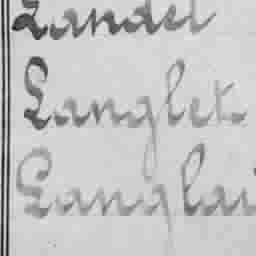 Landel
Langlet
Langlai